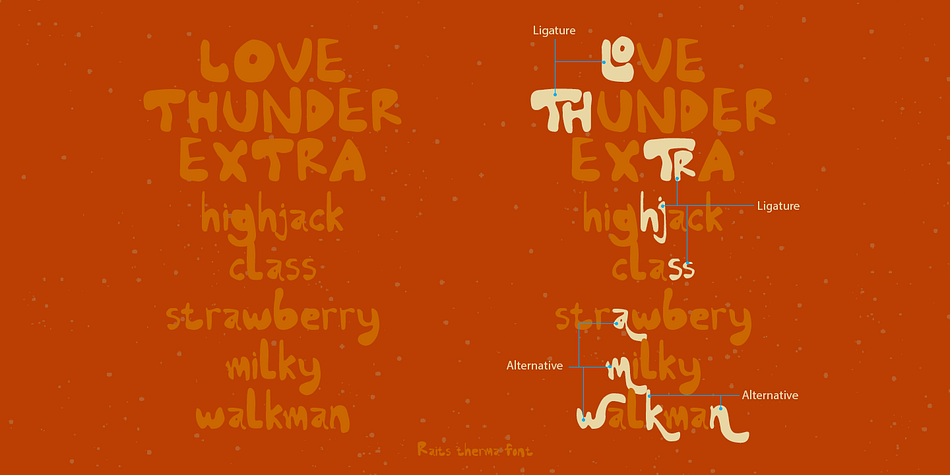 LOVE
THUNDER
EXTRA
highjack
class
strawberry
milky
walkman
Ligature
LOVE
THUNDER
EXTRA
highjack
Ligature
class
strawbery
Alternative
milky
Alternative
walkman
Raits therma font